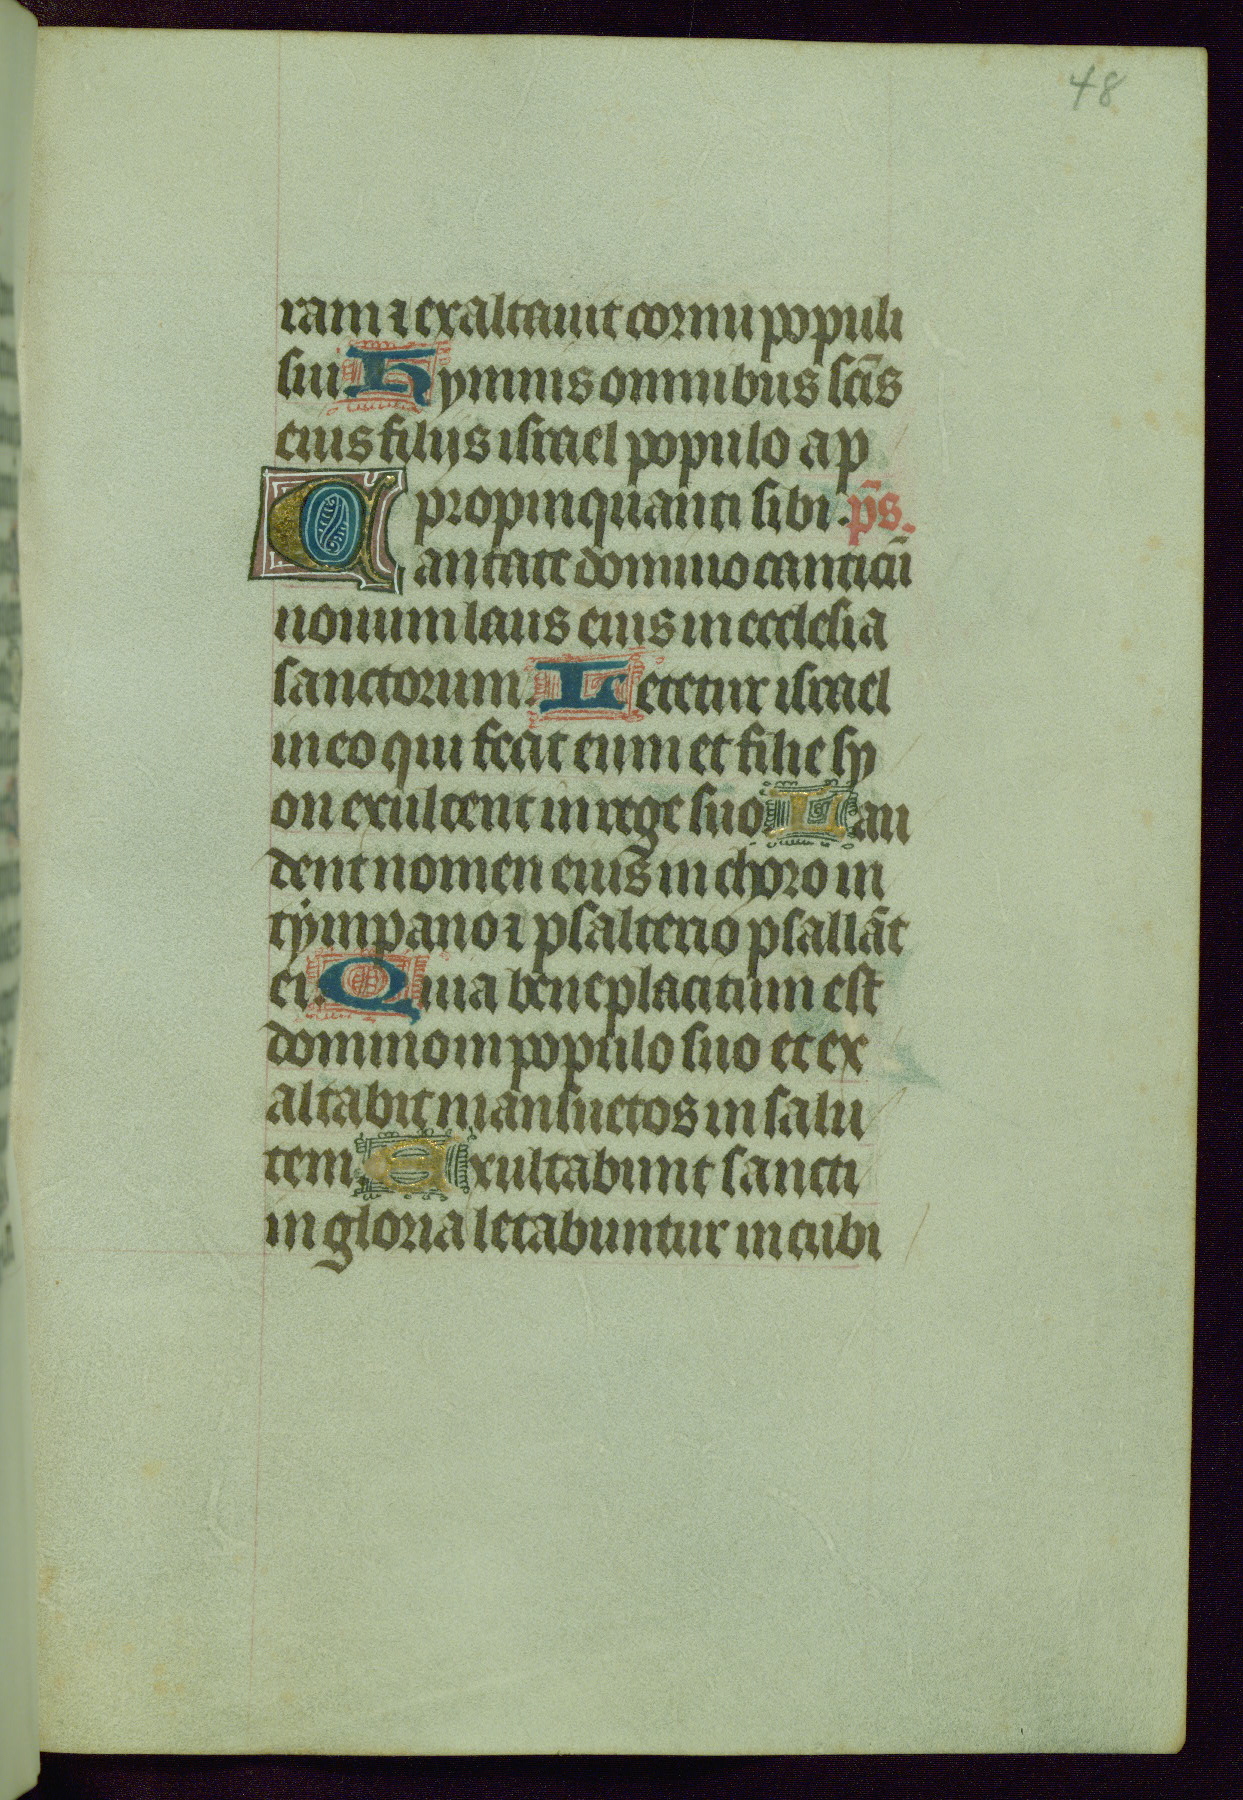 48
ram ⁊ exaltauit cornu populi
sui Hymnus omnibus sc̄is
eius filijs israel populo ap
propinquanti sibi. p̄s.
Cantate domino canticū
nouum laus eius in ecclesia
sanctorum. Letetur israel
in eo qui fecit eum et filie sy
on exultent in rege suo Lau
dent nomen eius in choro in
tÿmpano ⁊ psalterio psallāt
ei. Quia beneplacitum est
domino in populo suo et ex
altabit mansuetos in salu
tem. Exultabunt sancti
in gloria letabuntur in cubi